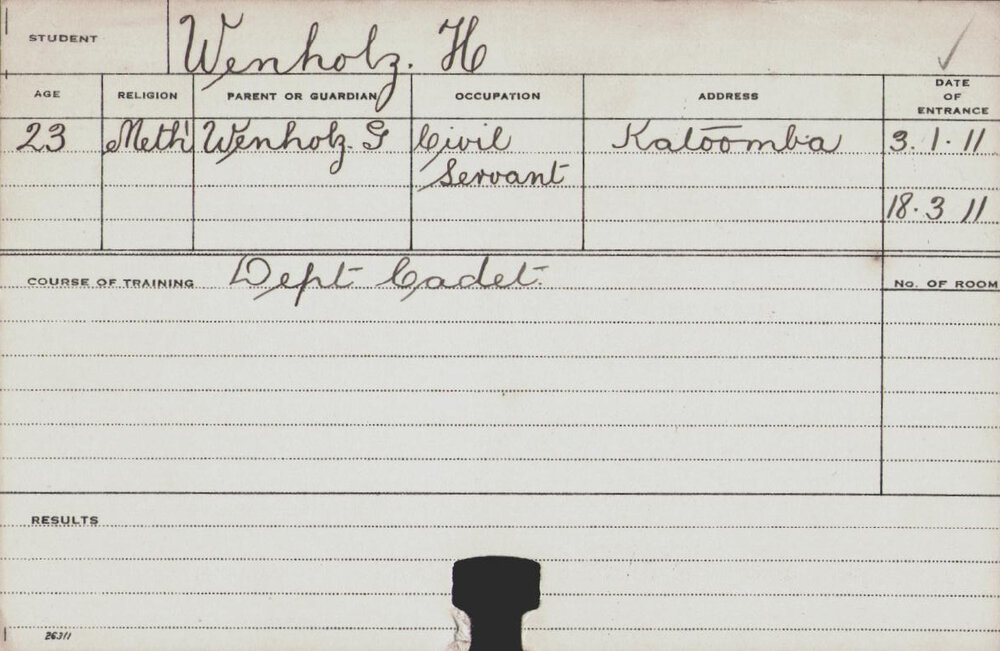 STUDENT Wenholz. H
AGE RELIGION PARENT OR GUARDIAN OCCUPATION ADDRESS DATE OF ENTRANCE
23 Meth Wenholz. G Civil Katoomba 3.1.11
Servant
18.3 11
COURSE OF TRAINING Dept Cadet. No. OF ROOM
RESULTS
26311